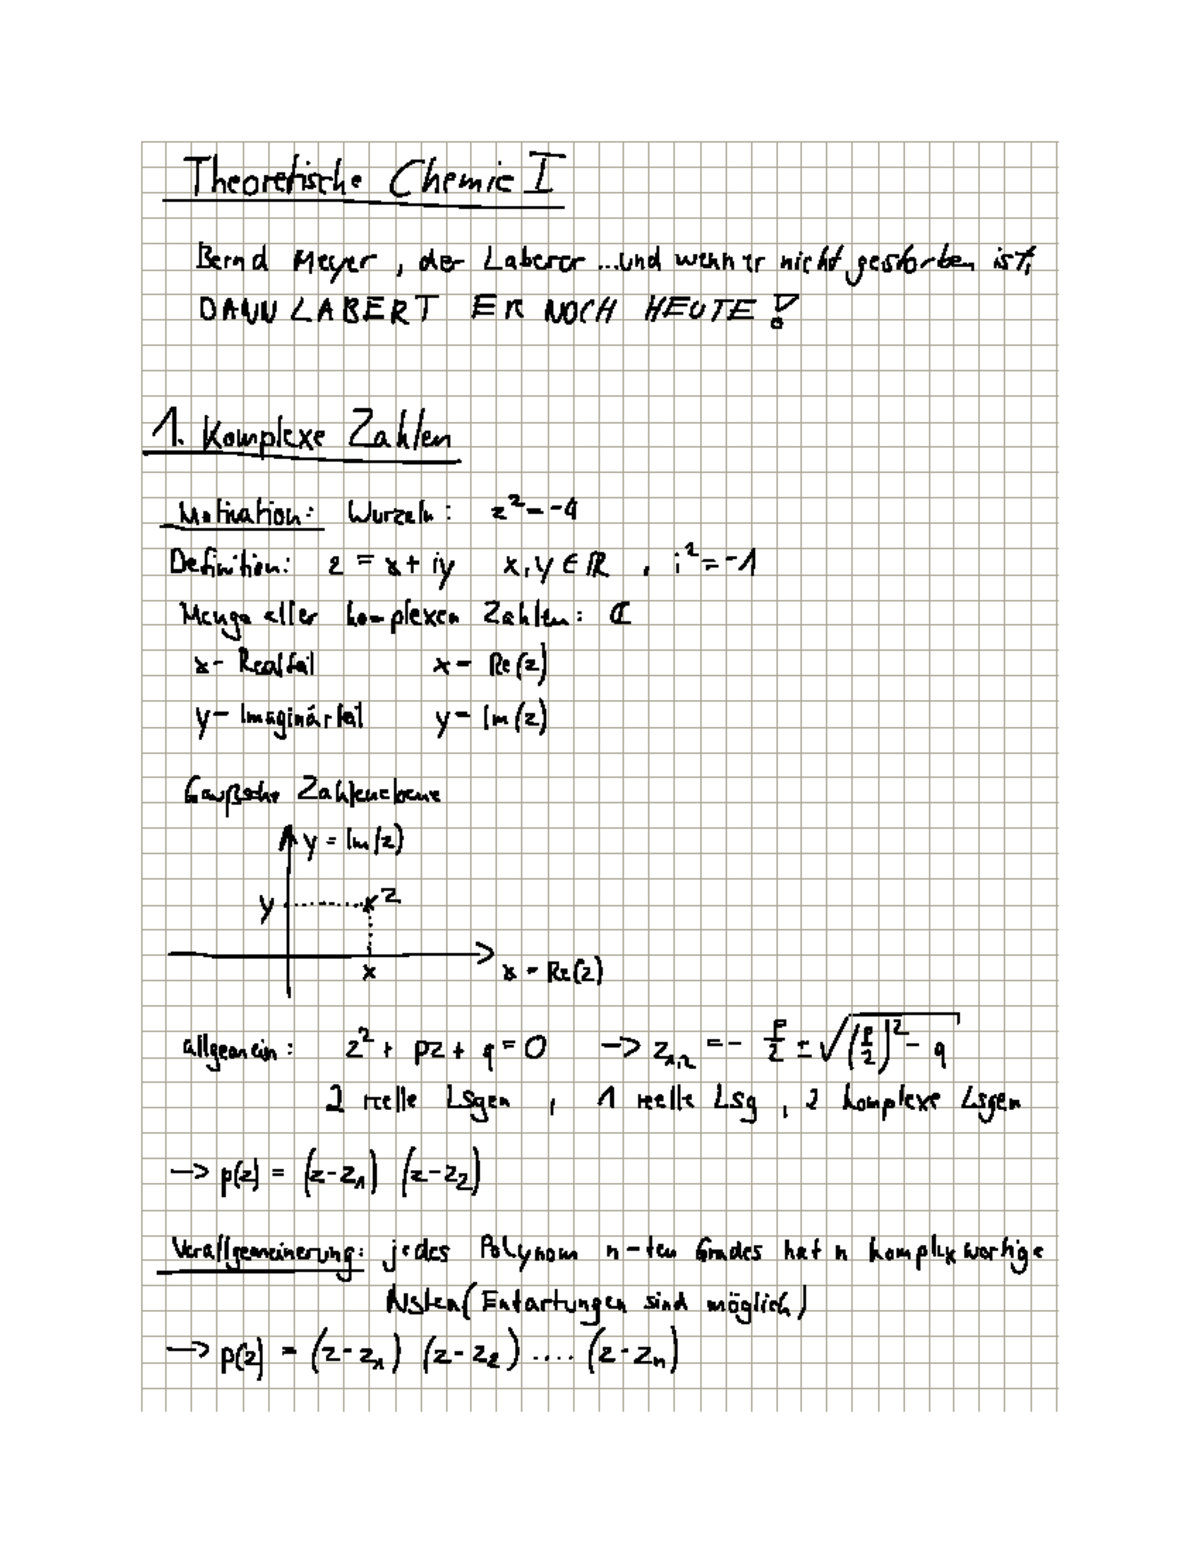 Theoretische Chemie I
Bernd Meyer, der Laberer ...und wenn er nicht gestorben ist,
DANN LABERT ER NOCH HEUTE!
1. Komplexe Zahlen
Motivation: Wurzeln: z² = -4
Definition: z = x + iy x, y ∈ ℝ , i² = -1
Menge aller komplexen Zahlen: ℂ
x - Realteil x = Re(z)
y - Imaginärteil y = Im(z)
Gaußsche Zahlenebene
y = Im(z)
y z
x x = Re(z)
allgemein: z² + pz + q = 0 -> z₁,₂ = - p/2 ± √((p/2)² - q)
2 reelle Lsgen , 1 reelle Lsg , 2 komplexe Lsgen
-> p(z) = (z-z₁) (z-z₂)
Verallgemeinerung: jedes Polynom n-ten Grades hat n komplexwertige
Nsten (Entartungen sind möglich)
-> p(z) = (z-z₁) (z-z₂) .... (z-zₙ)